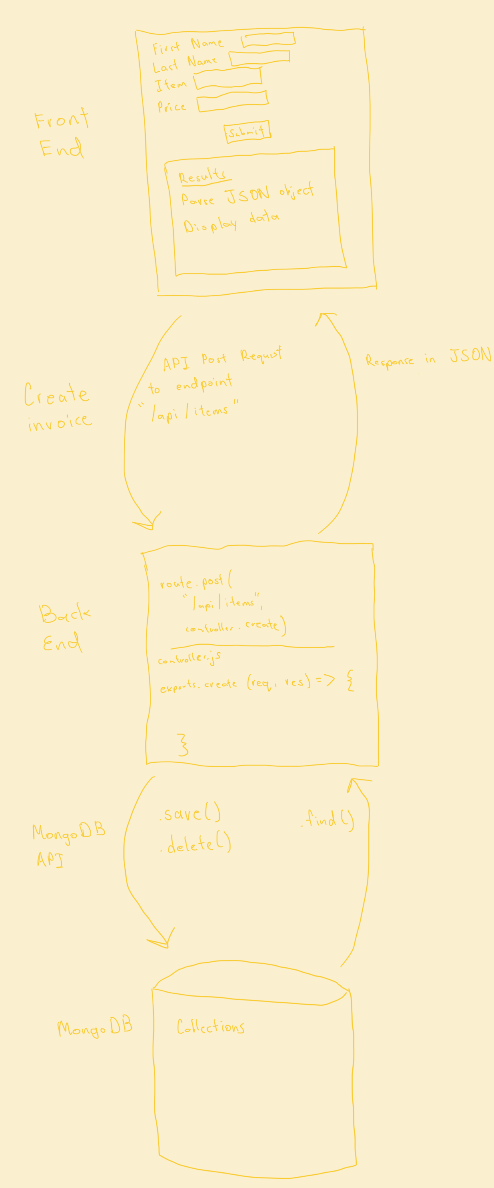 First Name
Last Name
Item
Price
Submit
Front
End
Results
Parse JSON object
Display data
API Post Request
to endpoint
"/api/items"
Response in JSON
Create
invoice
route.post(
"/api/items",
controller.create)
Back
End
controller.js
exports.create (req, res) => {
}
MongoDB
API
.save()
.delete()
.find()
MongoDB
Collections